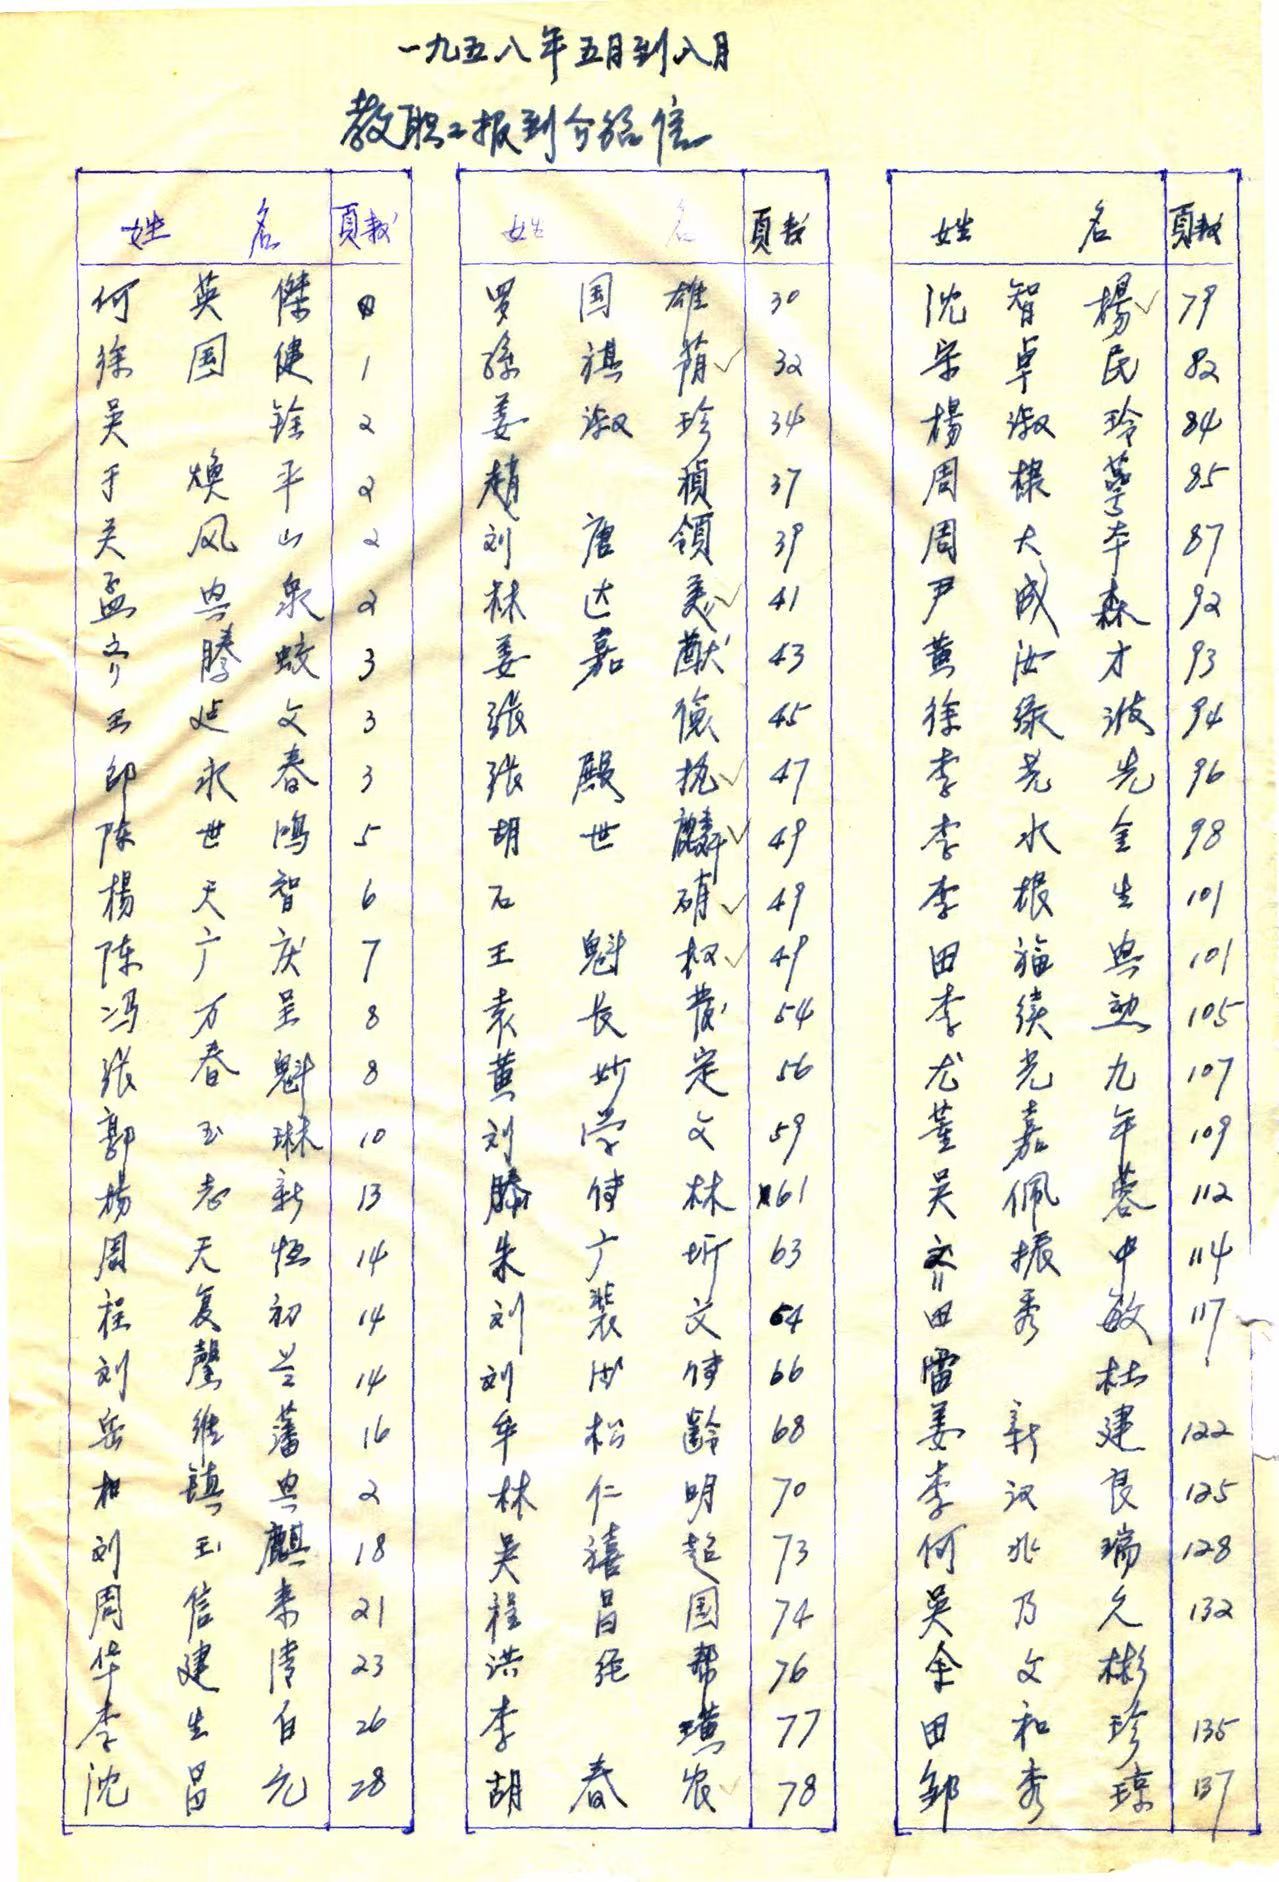 一九五八年五月到八月
教职工报到介绍信
姓 名 頁数
何英傑
徐国健 1
吴銓 2
于焕平 2
关风山 2
孟興泉 2
齐腾蛟 3
王廷文 3
邱永春 3
陈世鸿 5
楊天智 6
陈广庆 7
冯万呈 8
张春魁 8
郭玉琳 10
杨志新 13
周天恒 14
程复初 14
刘馨兰 14
岳维藩 16
柏镇興 2
刘玉麒 18
周信来 21
华建清 23
李生白 26
沈昌允 28
姓 名 頁数
罗国雄 30
孫祺荫✓ 32
姜淑珍 34
趙祯 37
刘唐領 39
林达美✓ 41
姜嘉猷 43
張儉 45
張殿抡✓ 47
胡世麟✓ 49
石硝✓ 49
王魁权✓ 49
袁长發 54
黄妙定 56
刘学文 59
滕传林 61
朱广圻 63
刘裴文 64
刘洪传 66
牟松齡 68
林仁明 70
吴禧超 73
程昌国 74
洪绝帮 76
李璜 77
胡春农✓ 78
姓 名 頁数
沈智楊✓ 79
宋卓民 82
楊淑玲 84
周棣萼 85
周大本 87
尹成森 92
黄汝才 93
徐绿波 94
李光先 96
李水金 98
李根生 101
田福興 101
李续勋 105
尤光九 107
董嘉年 109
吴佩蓉 112
齐振中 114
田秀敏 117
雷杜
姜新建 122
李汉良 125
何兆瑞 128
吴乃允 132
余文彬
田和珍 135
邹秀琼 137